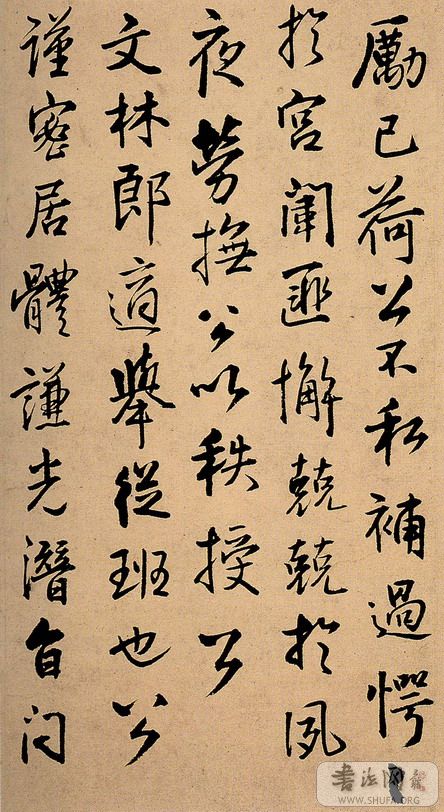 勵己荷公不私補過愕
於宮闈匪懈兢兢於夙
夜勞撫公以秩授公
文林郎適舉從班也公
謹密居體謙光潛旨问
書法网
WWW.SHUFA.ORG